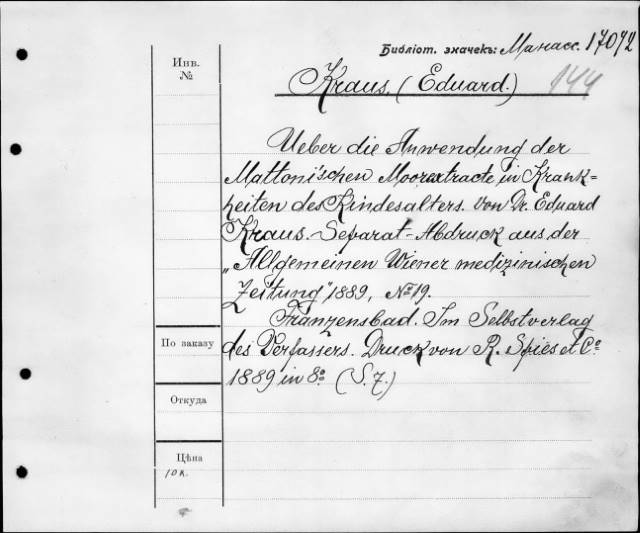 Библіот. значекъ: Манасс. 17072
Инв.
№
Kraus, (Eduard.)
144
Ueber die Anwendung der
Mattonischen Moorextracte in Krank=
heiten des Kindesalters. Von Dr. Eduard
Kraus. Separat-Abdruck aus der
„Allgemeinen Wiener medizinischen
Zeitung" 1889, No 19.
Franzensbad. Im Selbstverlag
des Verfassers. Druck von R. Spies et Co
1889 in 8o (S. 7.)
По заказу
Откуда
Цѣна
10 к.